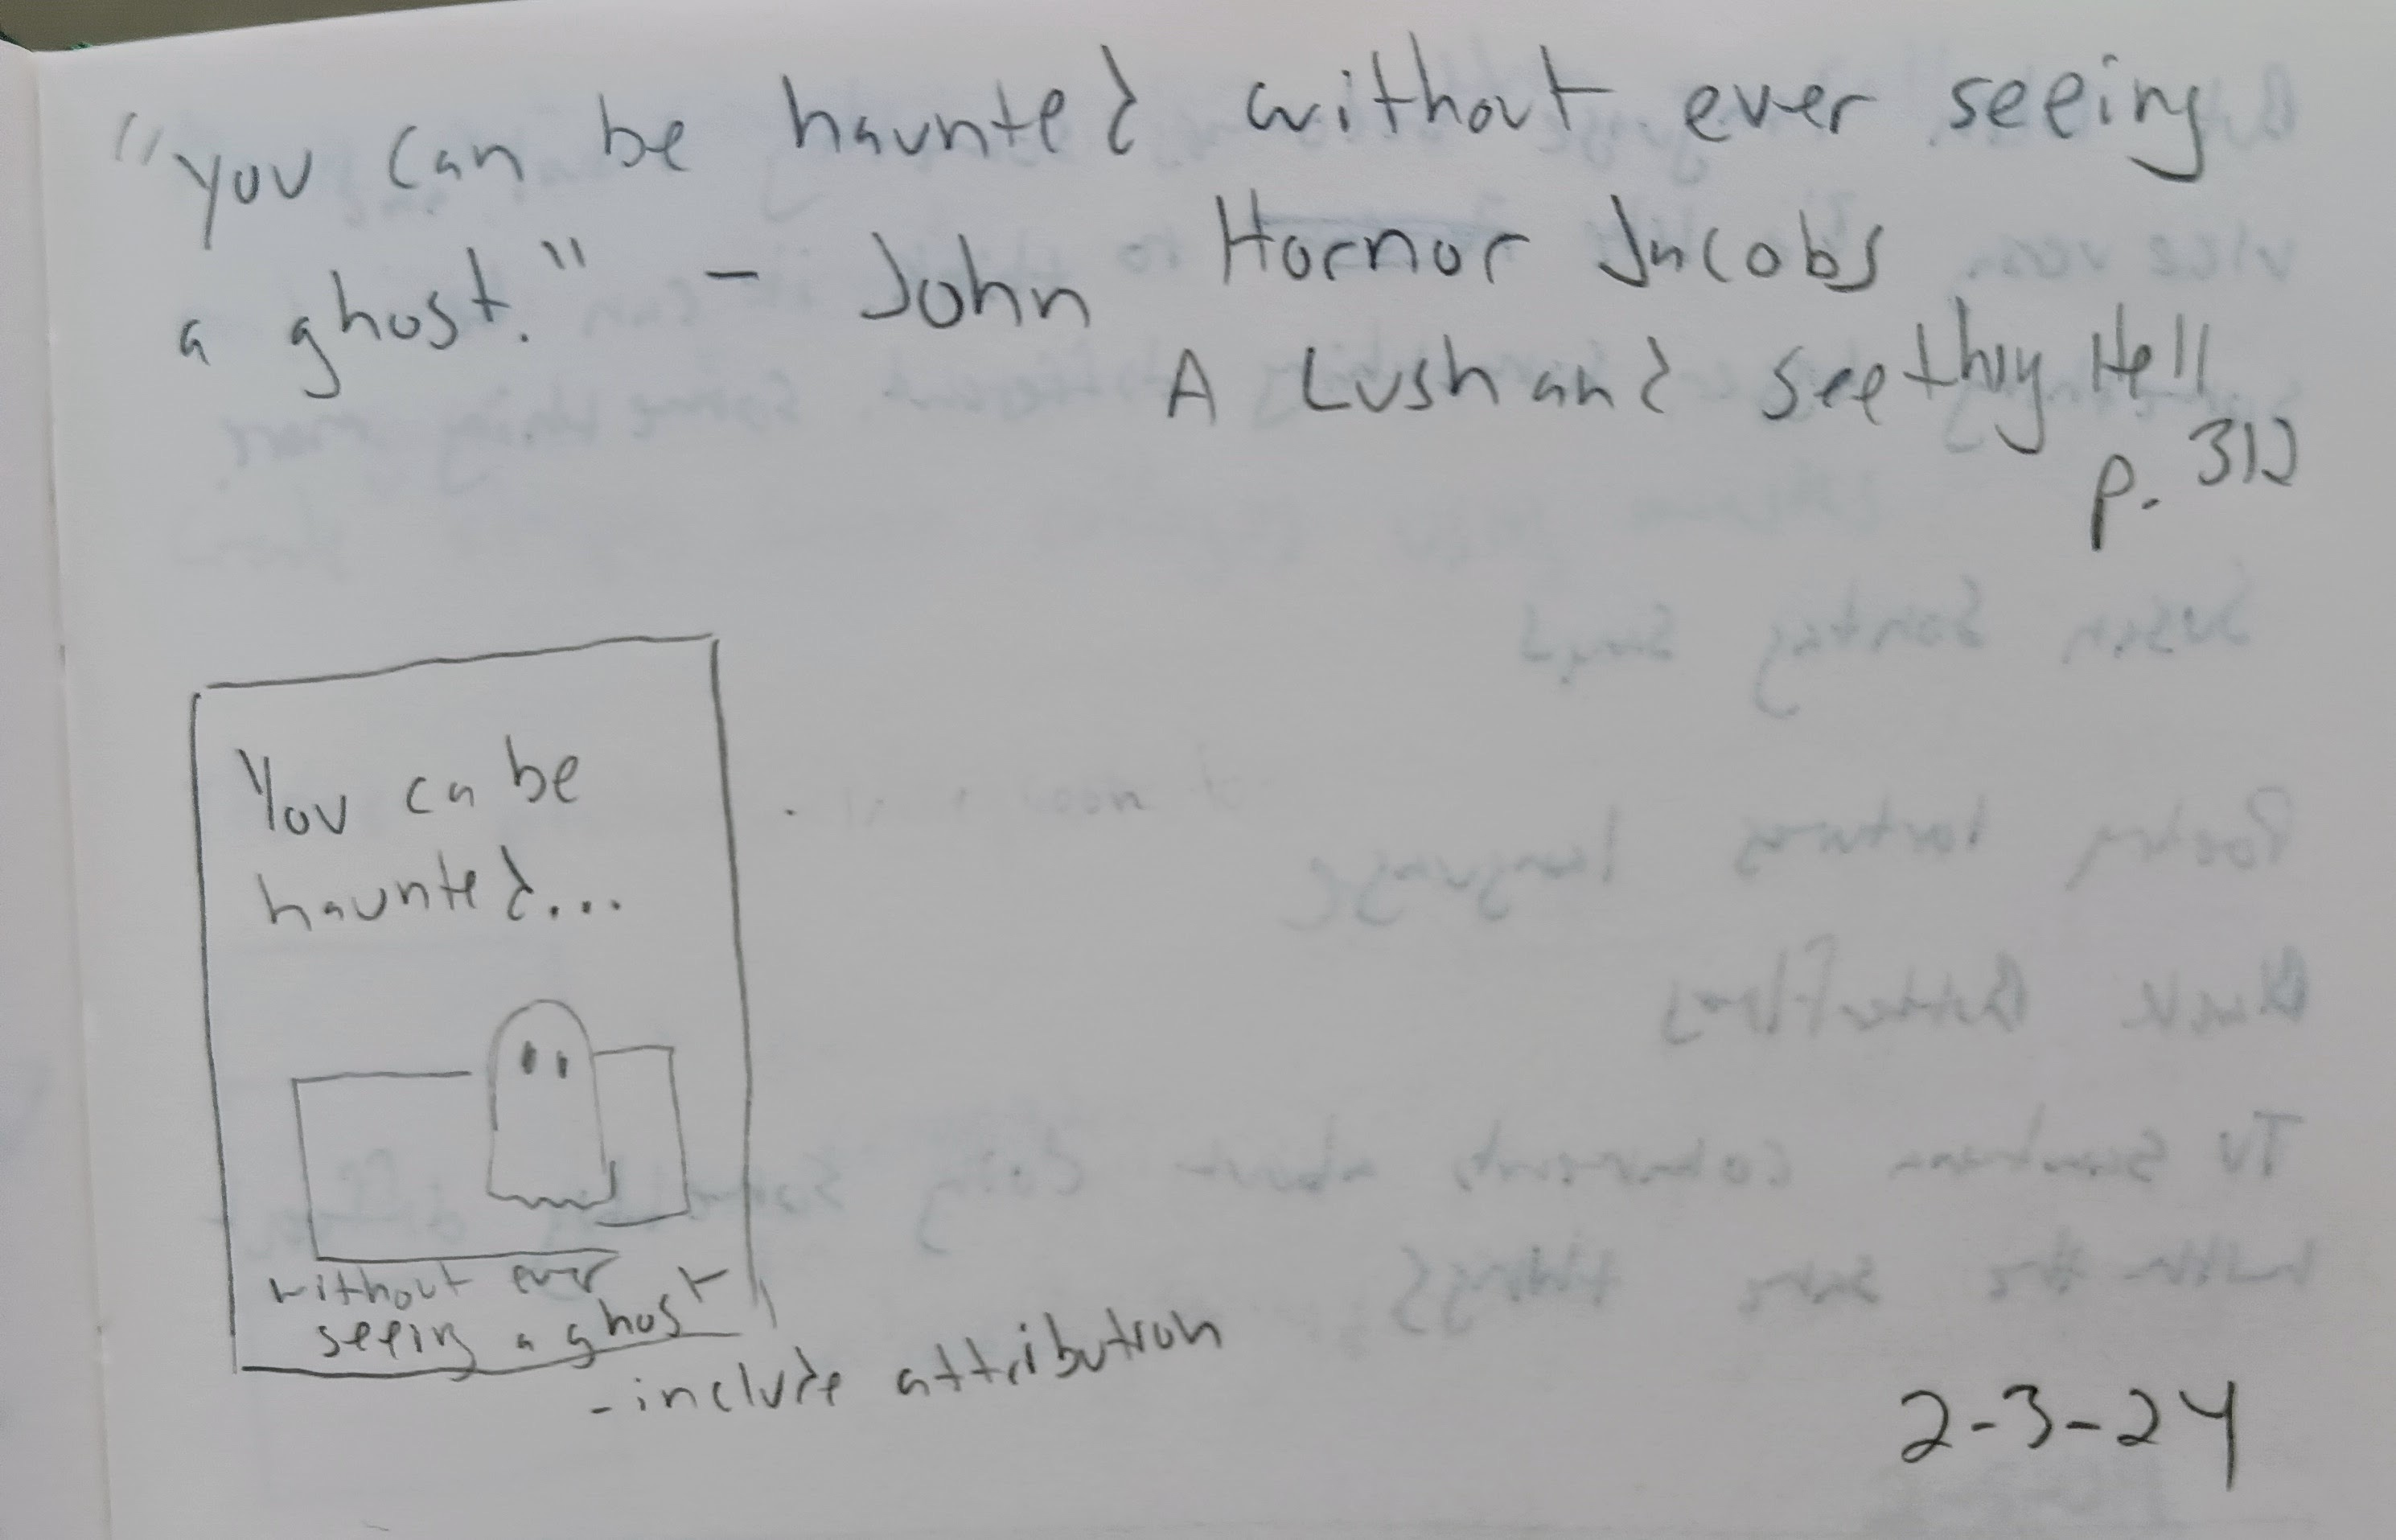 "you can be haunted without ever seeing
a ghost." - John Hornor Jacobs
A Lush and Seething Hell
p. 312
You can be
haunted...
without ever
seeing a ghost
- include attribution
2-3-24